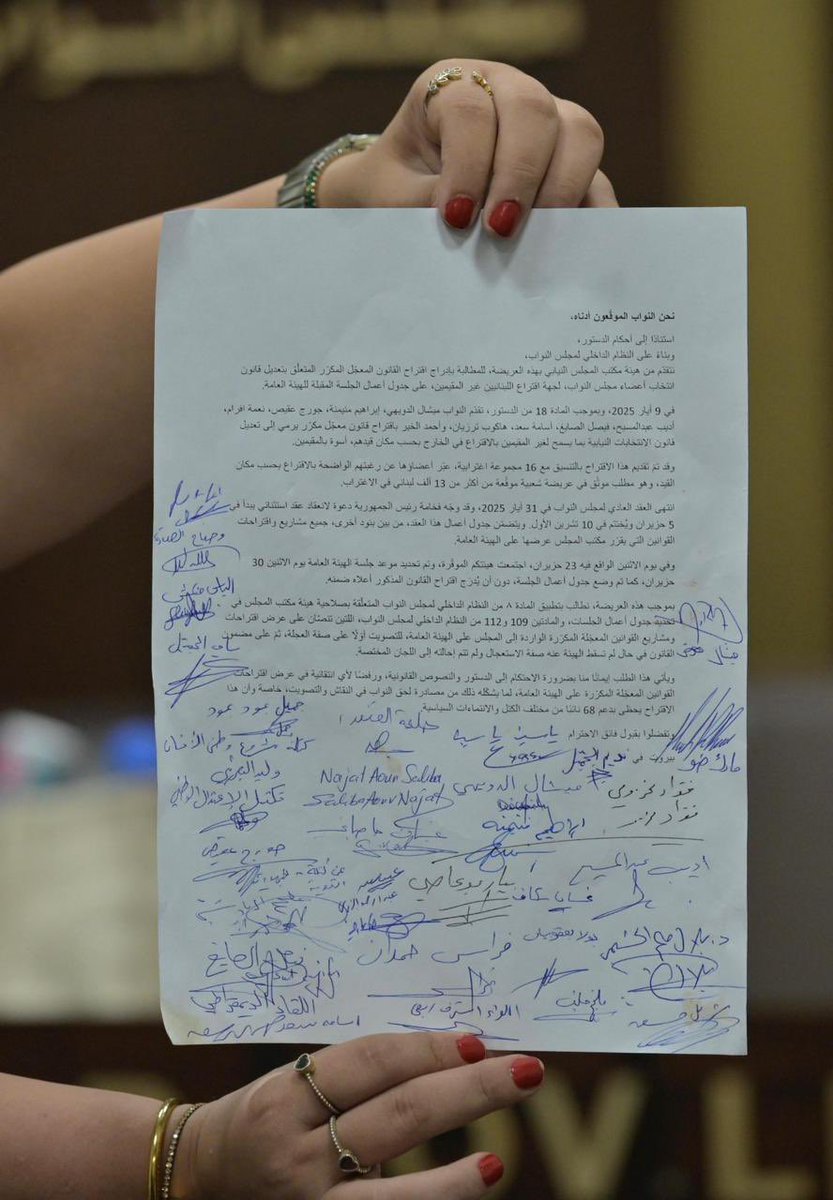 نحن النواب الموقّعون أدناه،
استنادًا إلى أحكام الدستور،
وبناءً على النظام الداخلي لمجلس النواب،
نتقدّم من هيئة مكتب المجلس النيابي بهذه العريضة، للمطالبة بإدراج اقتراح القانون المعجّل المكرّر المتعلّق بتعديل قانون
انتخاب أعضاء مجلس النواب، لجهة اقتراع اللبنانيين غير المقيمين، على جدول أعمال الجلسة المقبلة للهيئة العامة.
في 9 أيار 2025، وبموجب المادة 18 من الدستور، تقدّم النواب ميشال الدويهي، إبراهيم منيمنة، جورج عقيص، نعمة افرام،
أديب عبدالمسيح، فيصل الصايغ، أسامة سعد، هاكوب ترزيان، وأحمد الخير باقتراح قانون معجّل مكرّر يرمي إلى تعديل
قانون الانتخابات النيابية بما يسمح لغير المقيمين بالاقتراع في الخارج بحسب مكان قيدهم، أسوة بالمقيمين.
وقد تمّ تقديم هذا الاقتراح بالتنسيق مع 16 مجموعة اغترابية، عبّر أعضاؤها عن رغبتهم الواضحة بالاقتراع بحسب مكان
القيد، وهو مطلب موثّق في عريضة شعبية موقّعة من أكثر من 13 ألف لبناني في الاغتراب.
انتهى العقد العادي لمجلس النواب في 31 أيار 2025، وقد وجّه فخامة رئيس الجمهورية دعوة لانعقاد عقد استثنائي يبدأ في
5 حزيران ويُختتم في 10 تشرين الأول. ويتضمّن جدول أعمال هذا العقد، من بين بنود أخرى، جميع مشاريع واقتراحات
القوانين التي يقرر مكتب المجلس عرضها على الهيئة العامة.
وفي يوم الاثنين الواقع فيه 23 حزيران، اجتمعت هيئتكم الموقّرة، وتم تحديد موعد جلسة الهيئة العامة يوم الاثنين 30
حزيران، كما تم وضع جدول أعمال الجلسة، دون أن يُدرَج اقتراح القانون المذكور أعلاه ضمنه.
بموجب هذه العريضة، نطالب بتطبيق المادة ٨ من النظام الداخلي لمجلس النواب المتعلّقة بصلاحية هيئة مكتب المجلس في
تحديد جدول أعمال الجلسات، والمادتين 109 و112 من النظام الداخلي لمجلس النواب، اللتين تنصّان على عرض اقتراحات
ومشاريع القوانين المعجّلة المكرّرة الواردة إلى المجلس على الهيئة العامة، للتصويت أوّلًا على صفة العجلة، ثم على مضمون
القانون في حال لم تسقط الهيئة عنه صفة الاستعجال ولم تتم إحالته إلى اللجان المختصة.
ويأتي هذا الطلب إيمانًا منا بضرورة الاحتكام إلى الدستور والنصوص القانونية، ورفضًا لأي انتقائية في عرض اقتراحات
القوانين المعجّلة المكرّرة على الهيئة العامة، لما يشكّله ذلك من مصادرة لحق النواب في النقاش والتصويت، خاصة وأن هذا
الاقتراح يحظى بدعم 68 نائبًا من مختلف الكتل والانتماءات السياسية.
وتفضلوا بقبول فائق الاحترام
بيروت في
ميشال معوض
مارك ضو
ياسين ياسين
جميل عبود عبود
Najat Aoun Saliba
Saliba Aoun Najat
ميشال الدويهي
فؤاد مخزومي
فؤاد مخزومي
تكتل الاعتدال الوطني
ابراهيم منيمنة
جورج عقيص
أديب عبد المسيح
غسان سكاف
بولا يعقوبيان
فراس حمدان
فيصل الصايغ
اللقاء الديمقراطي
اللواء اشرف ريفي
ملحم خلف
اسامه سعد